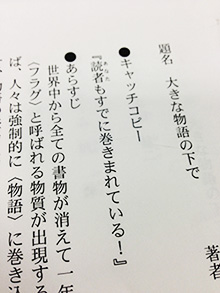 題名　大きな物語の下で
著者
●キャッチコピー
『読者もすでに巻きまれている！』
あなた
●あらすじ
世界中から全ての書物が消えて一年
〈フラグ〉と呼ばれる物質が出現する
ば、人々は強制的に〈物語〉に巻き込